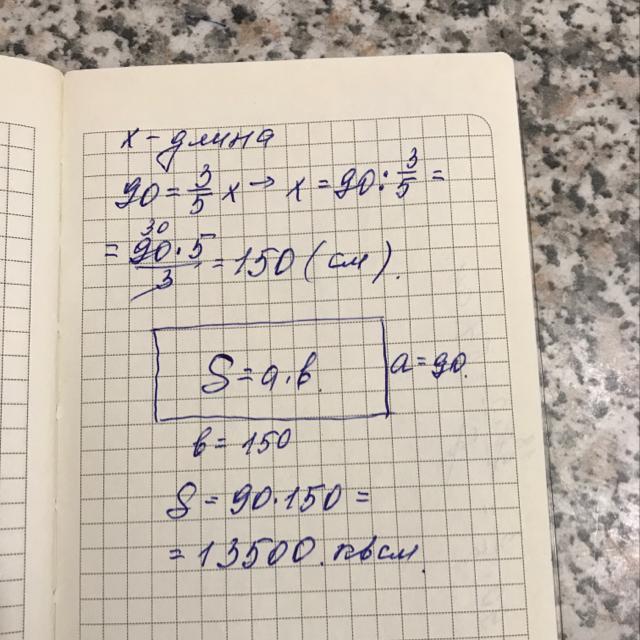 x – длина
90 = 3/5 x → x = 90 : 3/5 =
= 90·5/3 = 150 (см).
30
S = a·в.
a = 90.
в = 150
S = 90·150 =
= 13500. кв см.